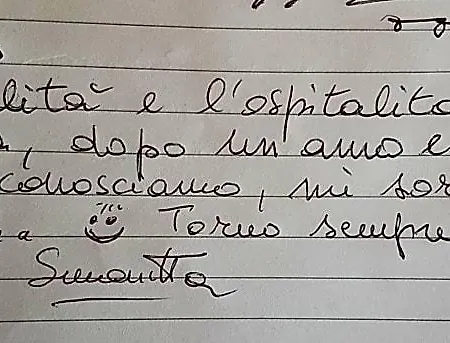 lità e l'ospitalità
, dopo un anno e
conosciamo, mi sor
a Torno sempre
Simonetta